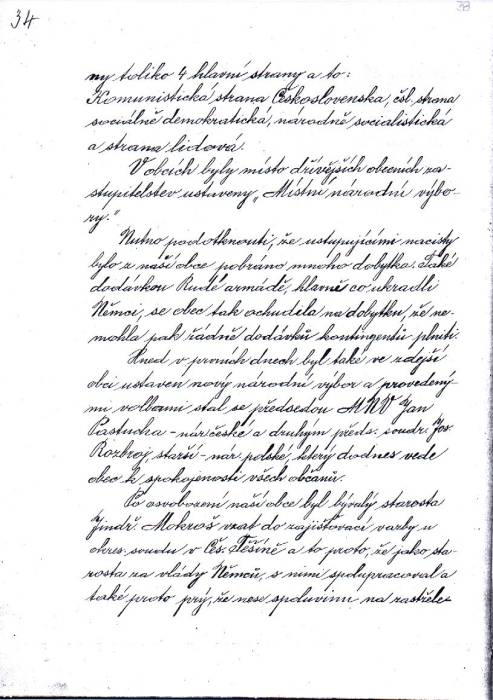 34
38
ny toliko 4 hlavní strany a to:
Komunistická strana Československa, čsl. strana
sociálně demokratická, národně socialistická
a strana lidová.
V obcích byly místo dřívějších obecních za-
stupitelstev ustaveny „Místní národní výbo-
ry.“
Nutno podotknouti, že ustupujícími nacisty
bylo z naší obce pobráno mnoho dobytka. Také
dodávkou Rudé armádě, hlavně co ukradli
Němci, se obec tak ochudila na dobytku, že ne-
mohla pak řádně dodávků kontingentů plniti.
Hned v prvních dnech byl také ve zdejší
obci ustaven nový národní výbor a provedený-
mi volbami stal se předsedou MNV Jan
Pastucha - nár. české a druhým předs. soudr. Jos.
Rozbroj, starší - nár. polské, který dodnes vede
obec k spokojenosti všech občanů.
Po osvobození naší obce byl bývalý starosta
Jindř. Mokroš vzat do zajišťovací vazby u
okres. soudu v Čes. Těšíně a to proto, že jako sta-
rosta za vlády Němců, s nimi spolupracoval a
také proto prý, že nese spoluvinu na zastřele-